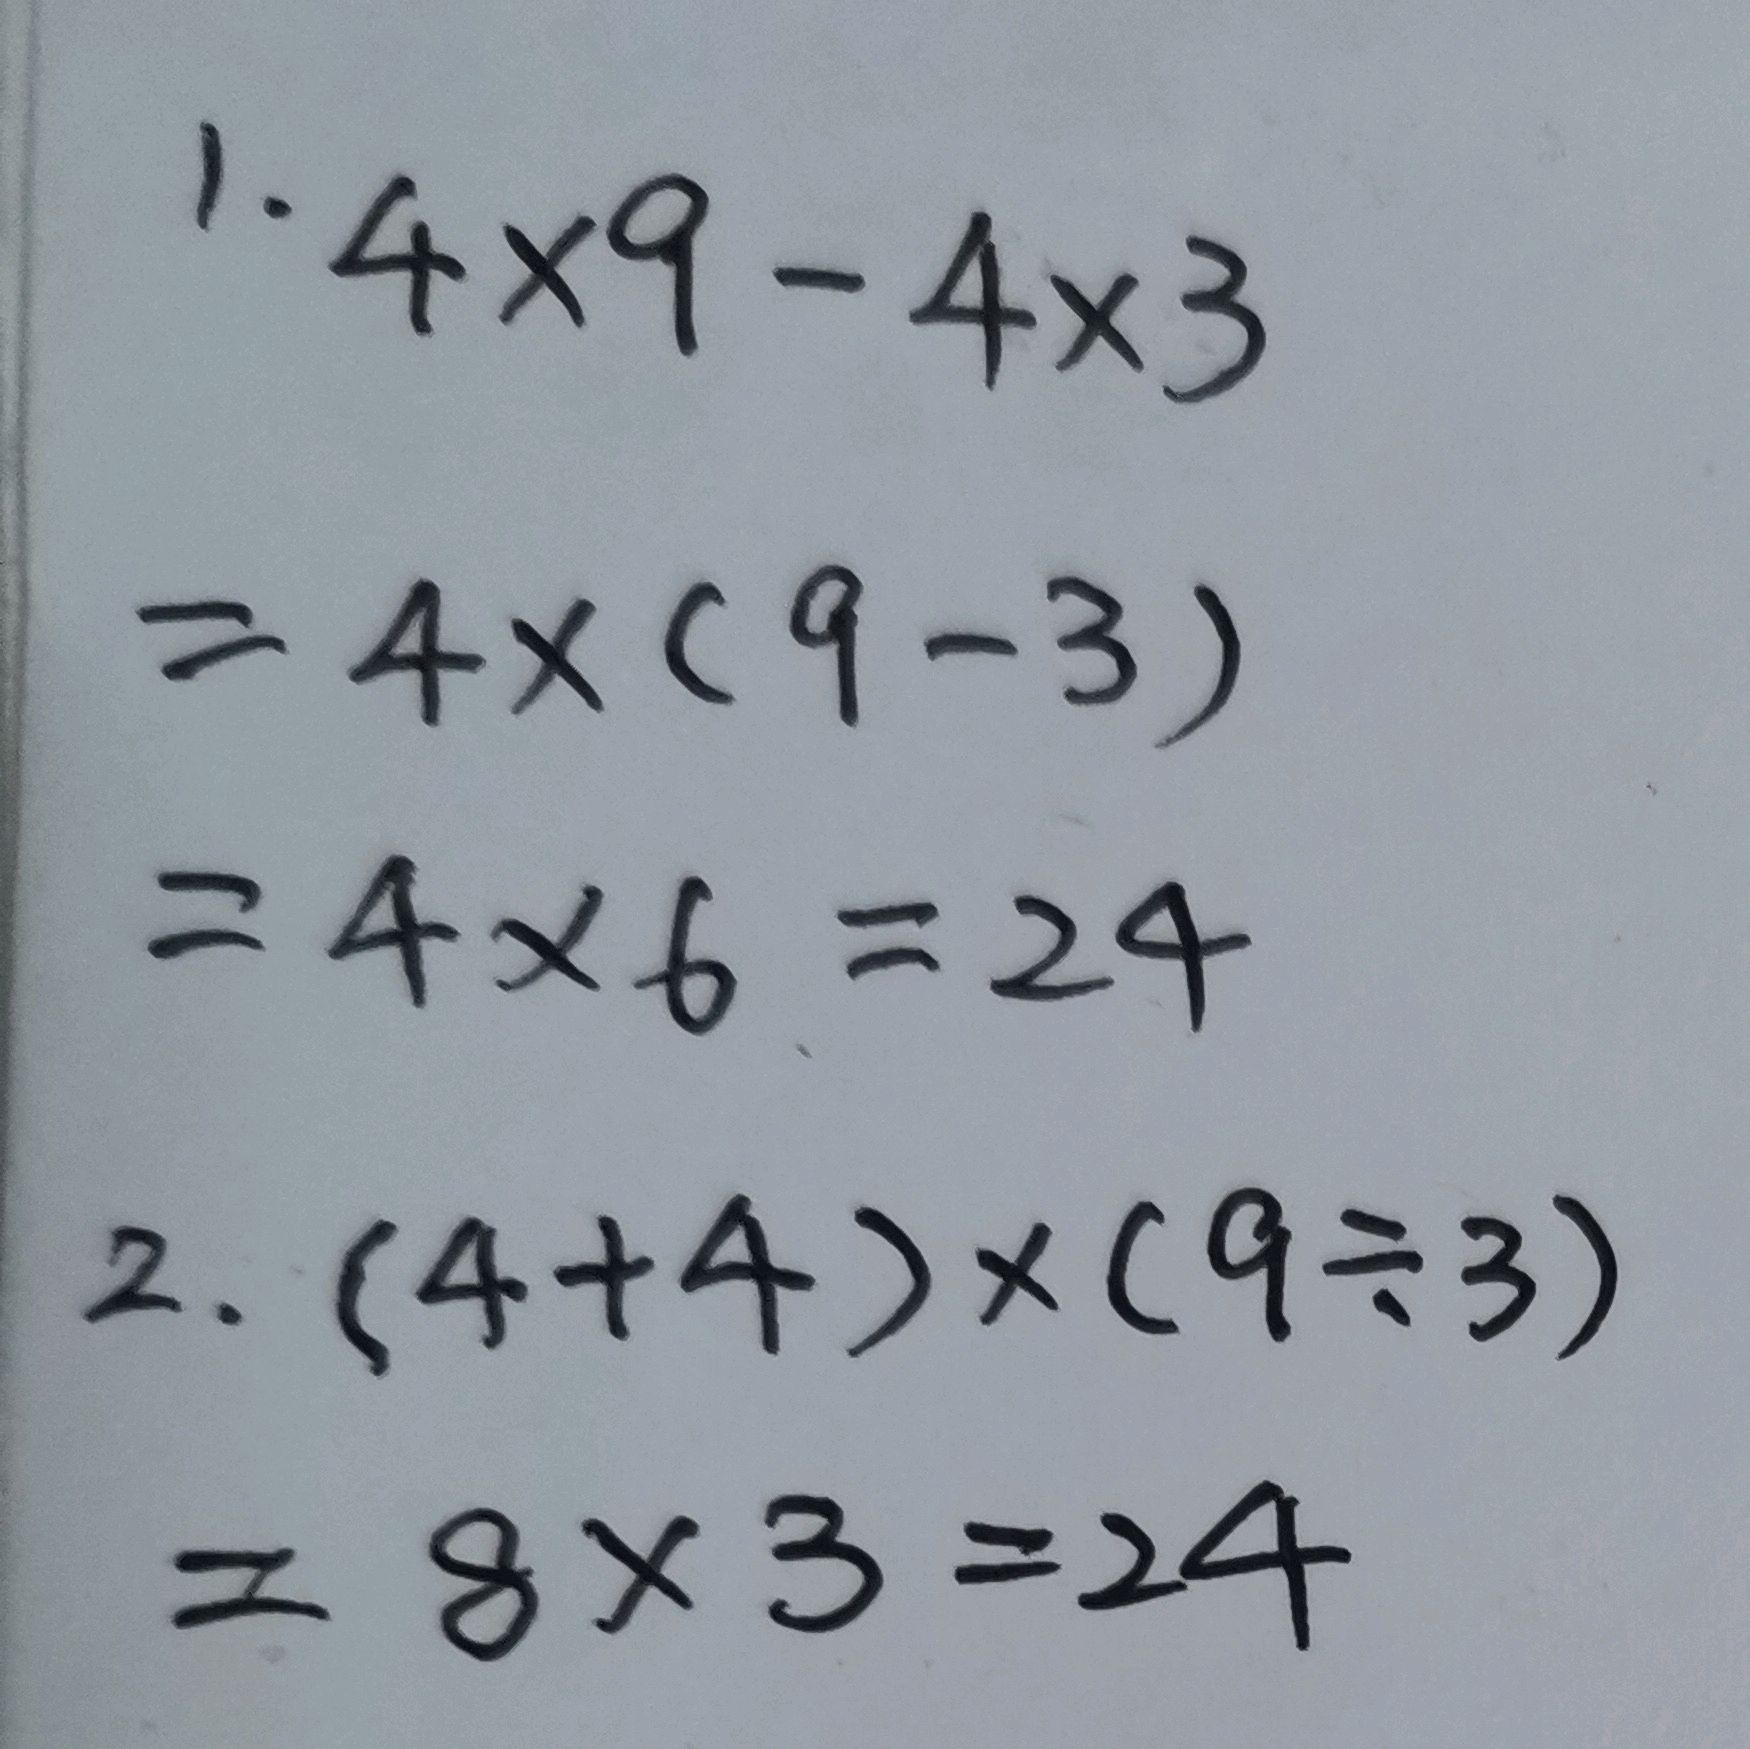 1. 4×9-4×3
=4×(9-3)
=4×6=24
2. (4+4)×(9÷3)
=8×3=24